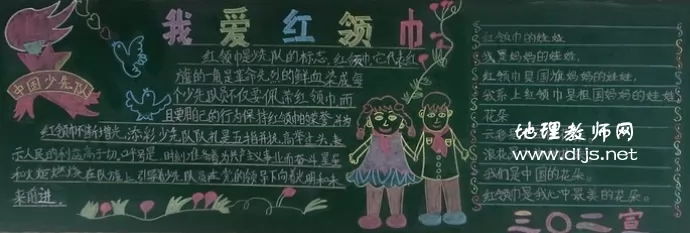 我爱红领巾
中国少先队
红领巾是少先队的标志,红领巾它代表红
旗的一角是革命先烈的鲜血染成每
个少先队员不仅要佩带红领巾而
且要用自己的行为保持红领巾的荣誉并为
红领巾不断增光,添彩少先队队礼是五指并拢,高举过头表
示人民的利益高于一切,呼号是,时刻准备着为共产主义事业而奋斗星星
和火炬燃烧在队旗上,引导着少先队员在党的领导下向着光明和未
来前进。
红领巾的娃娃
我是妈妈的娃娃,
红领巾是国旗妈妈的娃娃,
我系上红领巾是祖国妈妈的娃娃
花朵
云彩
浪花
我们是中国的花朵。
红领巾是我心中最美的花朵。
三〇二宣
地理教师网
www.dljs.net